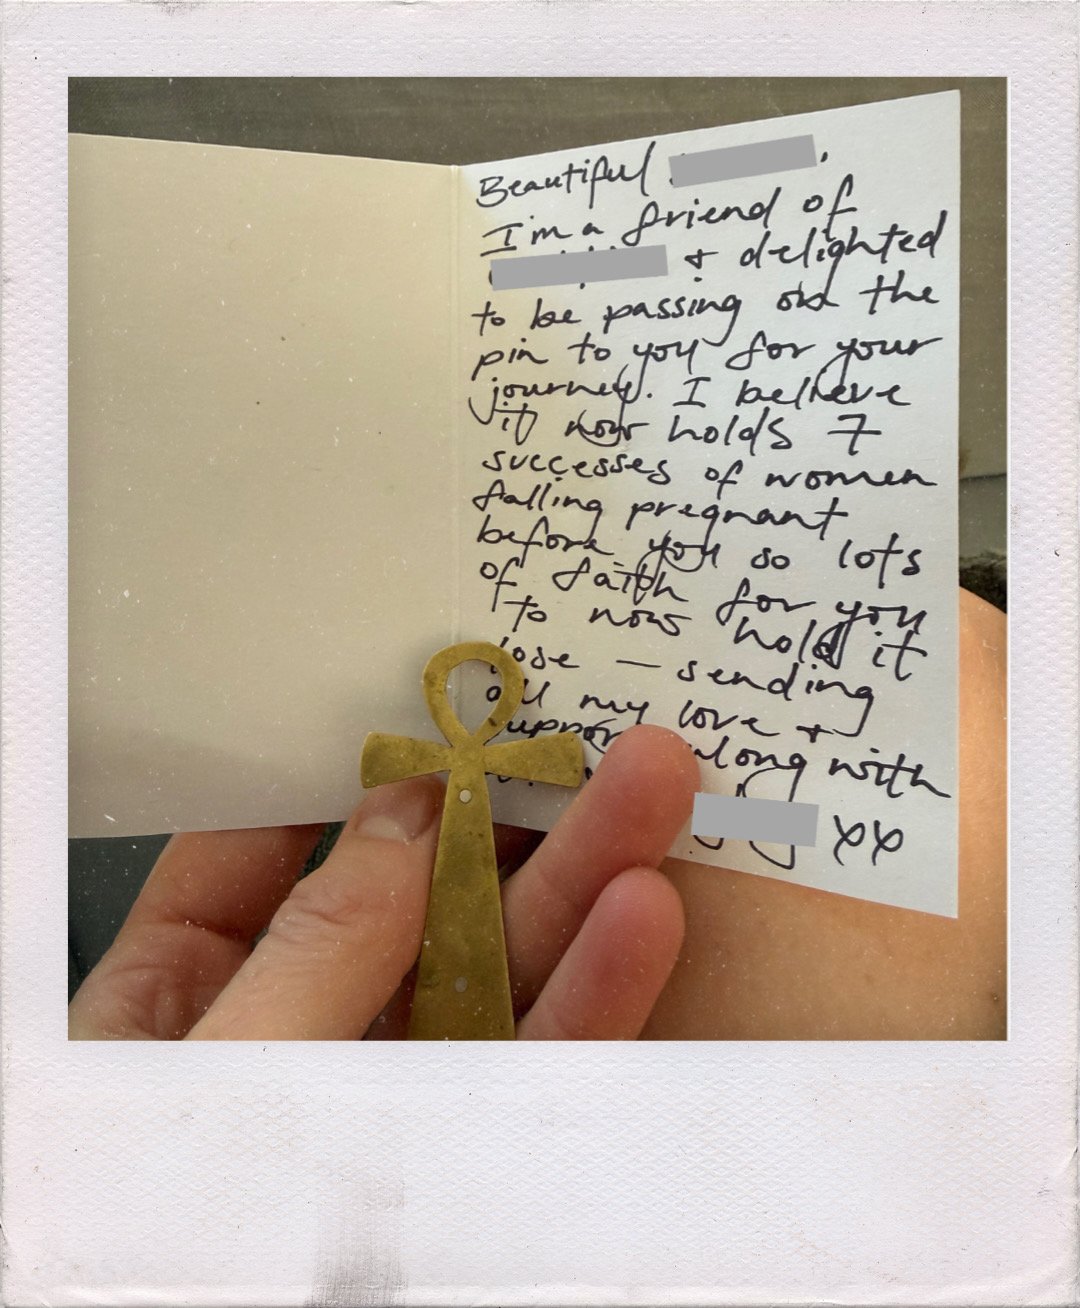 Beautiful
I'm a friend of
+ delighted
to be passing on the
pin to you for your
journey. I believe
it now holds 7
successes of women
falling pregnant
before you so lots
of faith for you
to now hold it
lose — sending
all my love +
support along with
xx